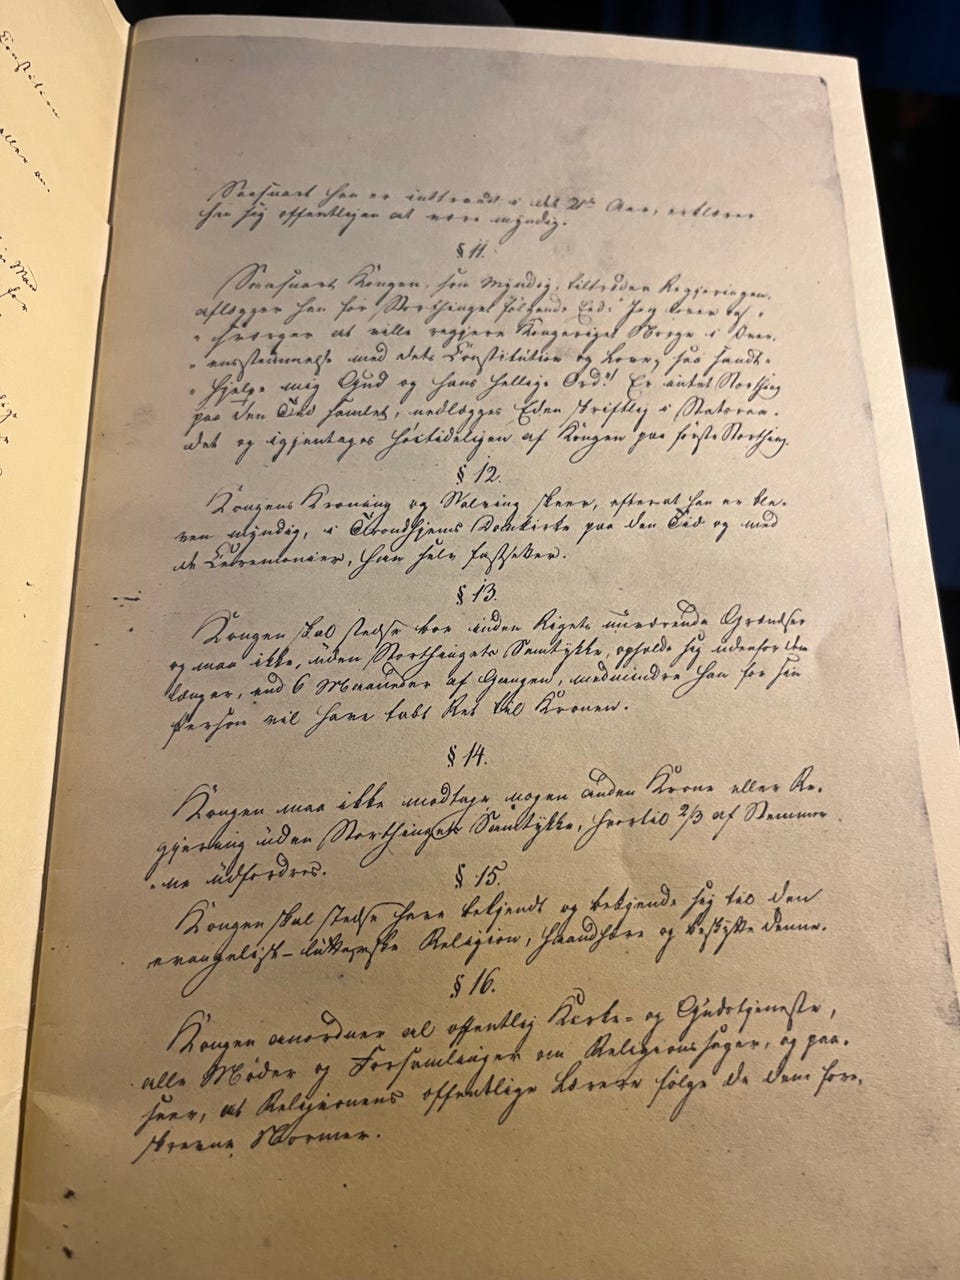 Constitution
eller an-
Saasnart han er indtraadt i det 21de Aar, erklærer
han sig offentligen at være myndig.
§ 11.
Saasnart Kongen, som Myndig, tiltræder Regjeringen,
aflægger han for Storthinget følgende Eed: "Jeg lover og
" sværger at ville regjere Kongeriget Norge i Over-
" ensstemmelse med dets Constitution og Love, saa sandt
" hjelpe mig Gud og hans hellige Ord"! Er intet Storthing
paa den Tid samlet, nedlægges Eden skriftlig i Statsraa-
det og igjentages høitideligen af Kongen paa første Storthing.
§ 12.
Kongens Kroning og Salving skeer, efterat han er ble-
ven myndig, i Trondhjems Domkirke paa den Tid og med
de Ceremonier, han selv fastsetter.
§ 13.
Kongen skal stedse boe inden Rigets nuværende Grændser
og maa ikke, uden Storthingets Samtykke, opholde sig udenfor dem
længer, end 6 Maaneder af Gangen, medmindre han for sin
Person vil have tabt Ret til Kronen.
§ 14.
Kongen maa ikke modtage nogen anden Krone eller Re-
gjering uden Storthingets Samtykke, hvortil 2/3 af Stemmer-
-ne udfordres.
§ 15.
Kongen skal stedse have bekjendt og bekjende sig til den
evangelisk-lutterske Religion, haandhæve og beskytte denne.
§ 16.
Kongen anordner al offentlig Kirke- og Gudstjeneste,
alle Møder og Forsamlinger om Religionssager, og paa-
seer, at Religionens offentlige Lærere følge de dem fore-
skrevne Normer.